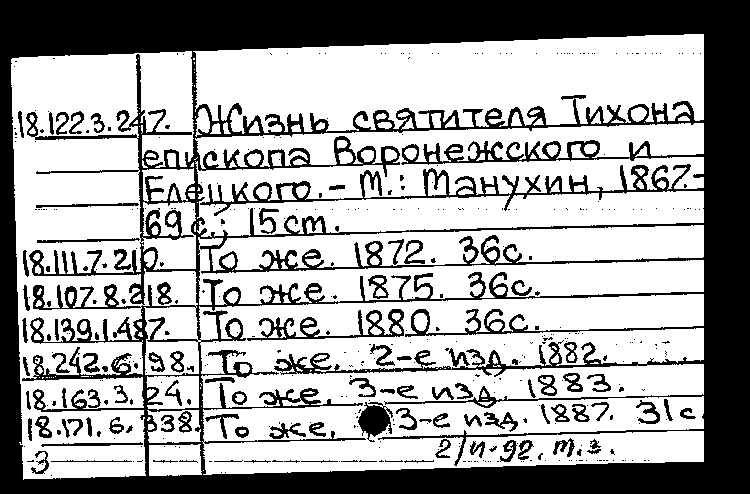 18.122.3.247. Жизнь святителя Тихона
епископа Воронежского и
Елецкого. - М.: Манухин, 1867.-
69 с.; 15 см.
18.111.7.210. То же. 1872. 36с.
18.107.8.218. То же. 1875. 36с.
18.139.1.487. То же. 1880. 36с.
18.242.6.98. То же. 2-е изд. 1882.
18.163.3.24. То же. 3-е изд. 1883.
18.171.6.338. То же. 3-е изд. 1887. 31с.
3